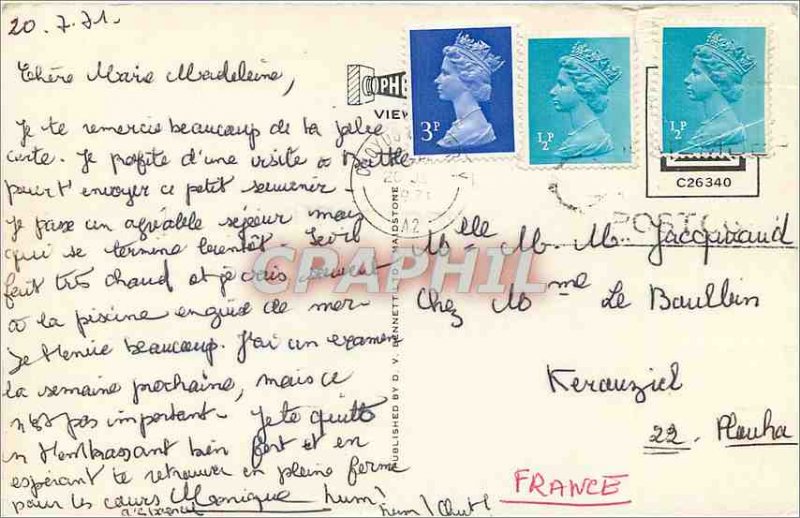 20.7.71.
Chère Marie Madeleine,
Je te remercie beaucoup de ta jolie
carte. Je profite d'une visite à Battle
pour t'envoyer ce petit souvenir.
Je passe un agréable séjour mais
qui se termine bientôt. Ici il
fait très chaud et je vais souvent
à la piscine en guise de mer.
beaucoup. J'ai un examen
la semaine prochaine, mais ce
n'est pas important. Je te quitte
en t'embrassant bien fort et en
espérant te retrouver en pleine forme
pour les cours Monique hum!
hum! Chut!
3P
½P
½P
PHE
VIEW
C26340
POST
CPAPHIL
PUBLISHED BY D. V. BENNETT LTD. MAIDSTONE
Mlle M. M. Jacquaud
Chez Mme Le Baullin
Kerouziel
22. Plouha
FRANCE